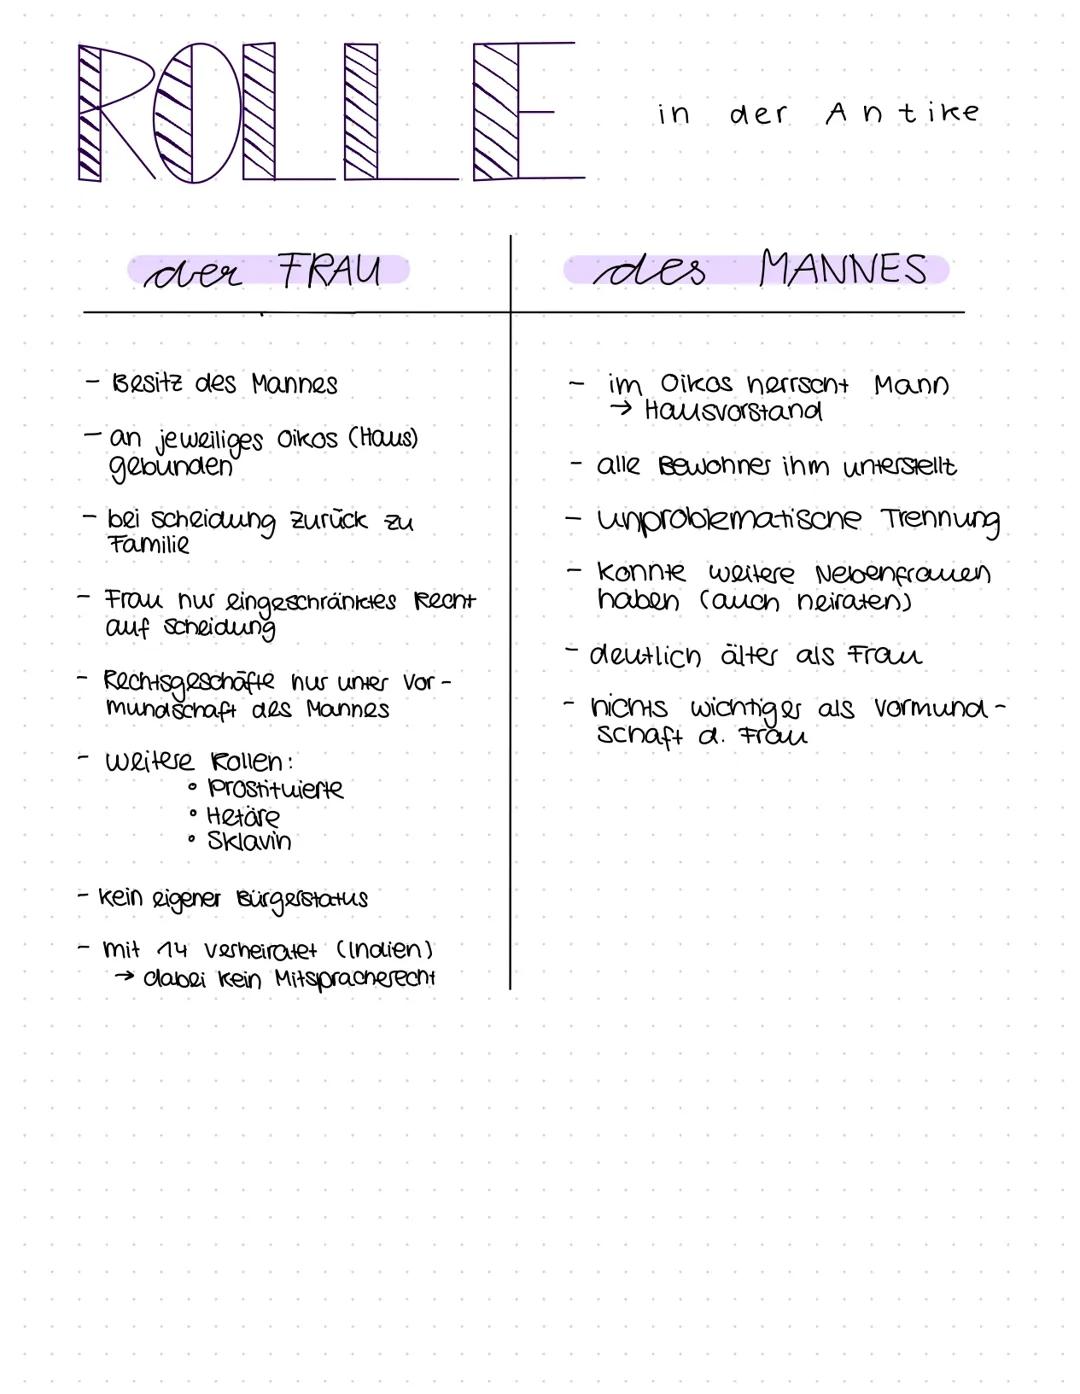 ROLLE in der Antike
der FRAU
- Besitz des Mannes
- an jeweiliges Oikos (Haus)
gebunden
- bei Scheidung zurück zu
Familie
- Frau nur eingeschränktes Recht
auf Scheidung
- Rechtsgeschäfte nur unter Vor-
mundschaft des Mannes
- weitere Rollen:
• Prostituierte
• Hetäre
• Sklavin
- kein eigener Bürgerstatus
- mit 14 verheiratet (Indien)
→ dabei kein Mitspracherecht
des MANNES
- im Oikos herrscht Mann
→ Hausvorstand
- alle Bewohner ihm unterstellt
- unproblematische Trennung
- konnte weitere Nebenfrauen
haben (auch heiraten)
- deutlich älter als Frau
- nichts wichtiger als Vormund-
schaft d. Frau